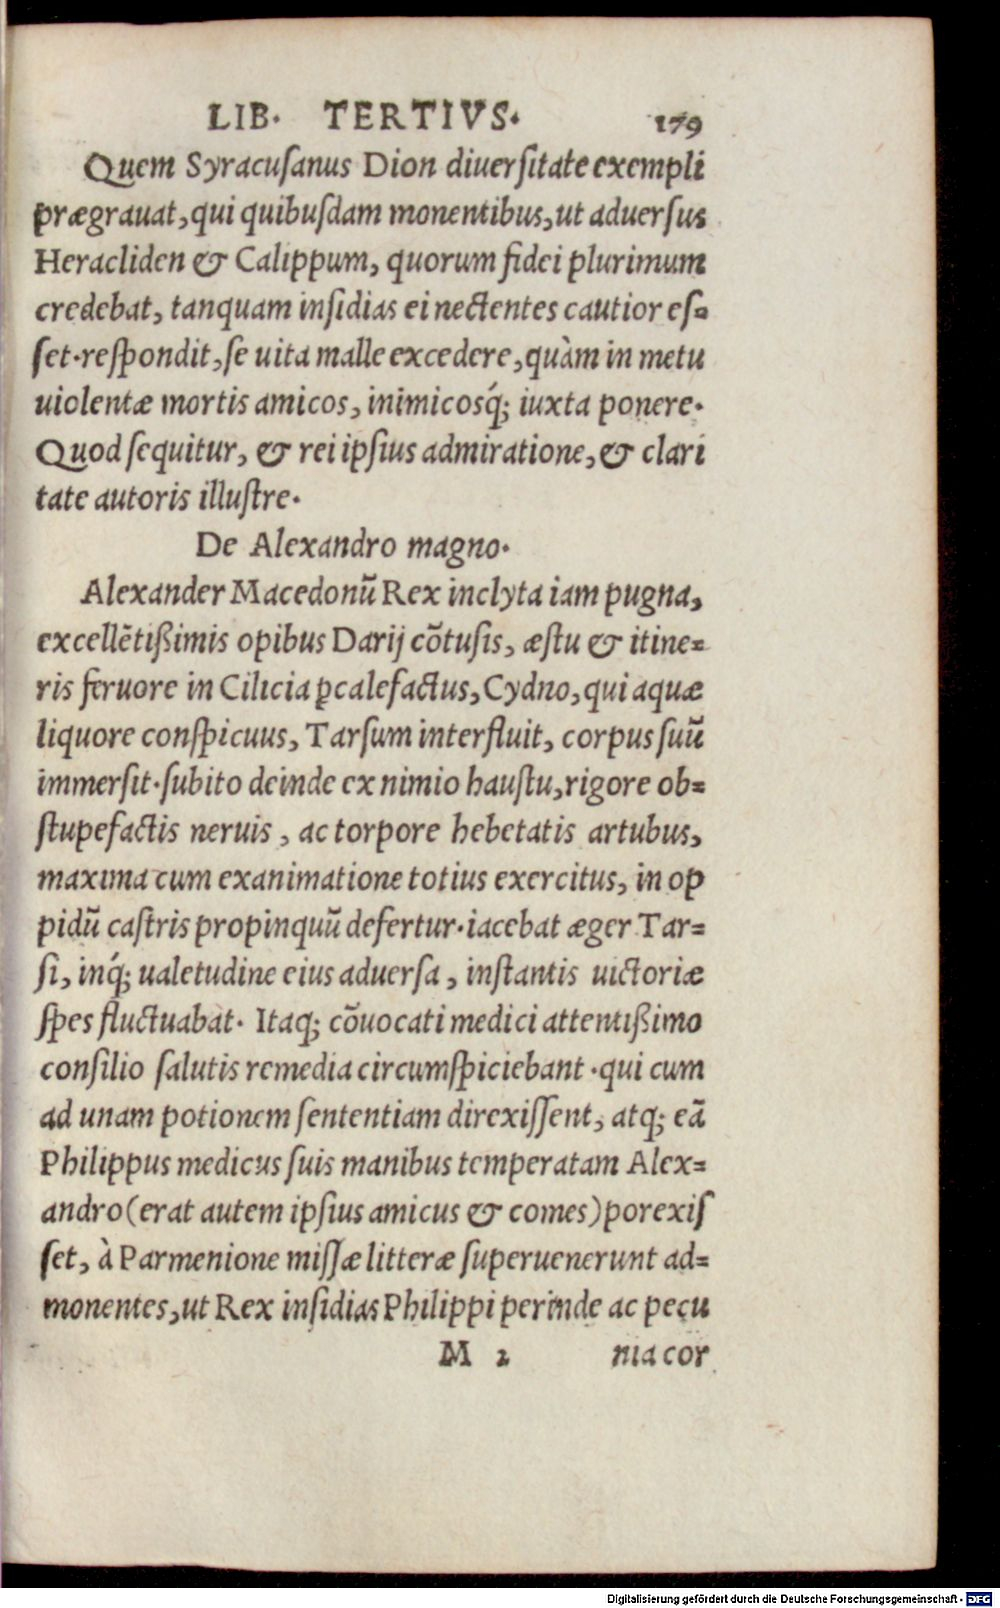 LIB. TERTIVS. 179
Quem Syracuſanus Dion diuerſitate exempli
prægrauat, qui quibuſdam monentibus, ut aduerſus
Heracliden & Calippum, quorum fidei plurimum
credebat, tanquam inſidias ei nectentes cautior eſ=
ſet. reſpondit, ſe uita malle excedere, quàm in metu
uiolentæ mortis amicos, inimicosq́; iuxta ponere.
Quod ſequitur, & rei ipſius admiratione, & clari
tate autoris illuſtre.
De Alexandro magno.
Alexander Macedonũ Rex inclyta iam pugna,
excellẽtißimis opibus Darij cõtuſis, æſtu & itine=
ris feruore in Cilicia ꝑcalefactus, Cydno, qui aquæ
liquore conſpicuus, Tarſum interfluit, corpus ſuũ
immerſit. ſubito deinde ex nimio hauſtu, rigore ob=
ſtupefactis neruis, ac torpore hebetatis artubus,
maxima cum exanimatione totius exercitus, in op
pidũ caſtris propinquũ defertur. iacebat æger Tar=
ſi, inq́; ualetudine eius aduerſa, inſtantis uictoriæ
ſpes fluctuabat. Itaq; cõuocati medici attentißimo
conſilio ſalutis remedia circumſpiciebant. qui cum
ad unam potionem ſententiam direxiſſent, atq; eã
Philippus medicus ſuis manibus temperatam Alex=
andro (erat autem ipſius amicus & comes) porexiſ
ſet, à Parmenione miſſæ litteræ ſuperuenerunt ad=
monentes, ut Rex inſidias Philippi perinde ac pecu
M 2 nia cor
Digitalisierung gefördert durch die Deutsche Forschungsgemeinschaft - DFG